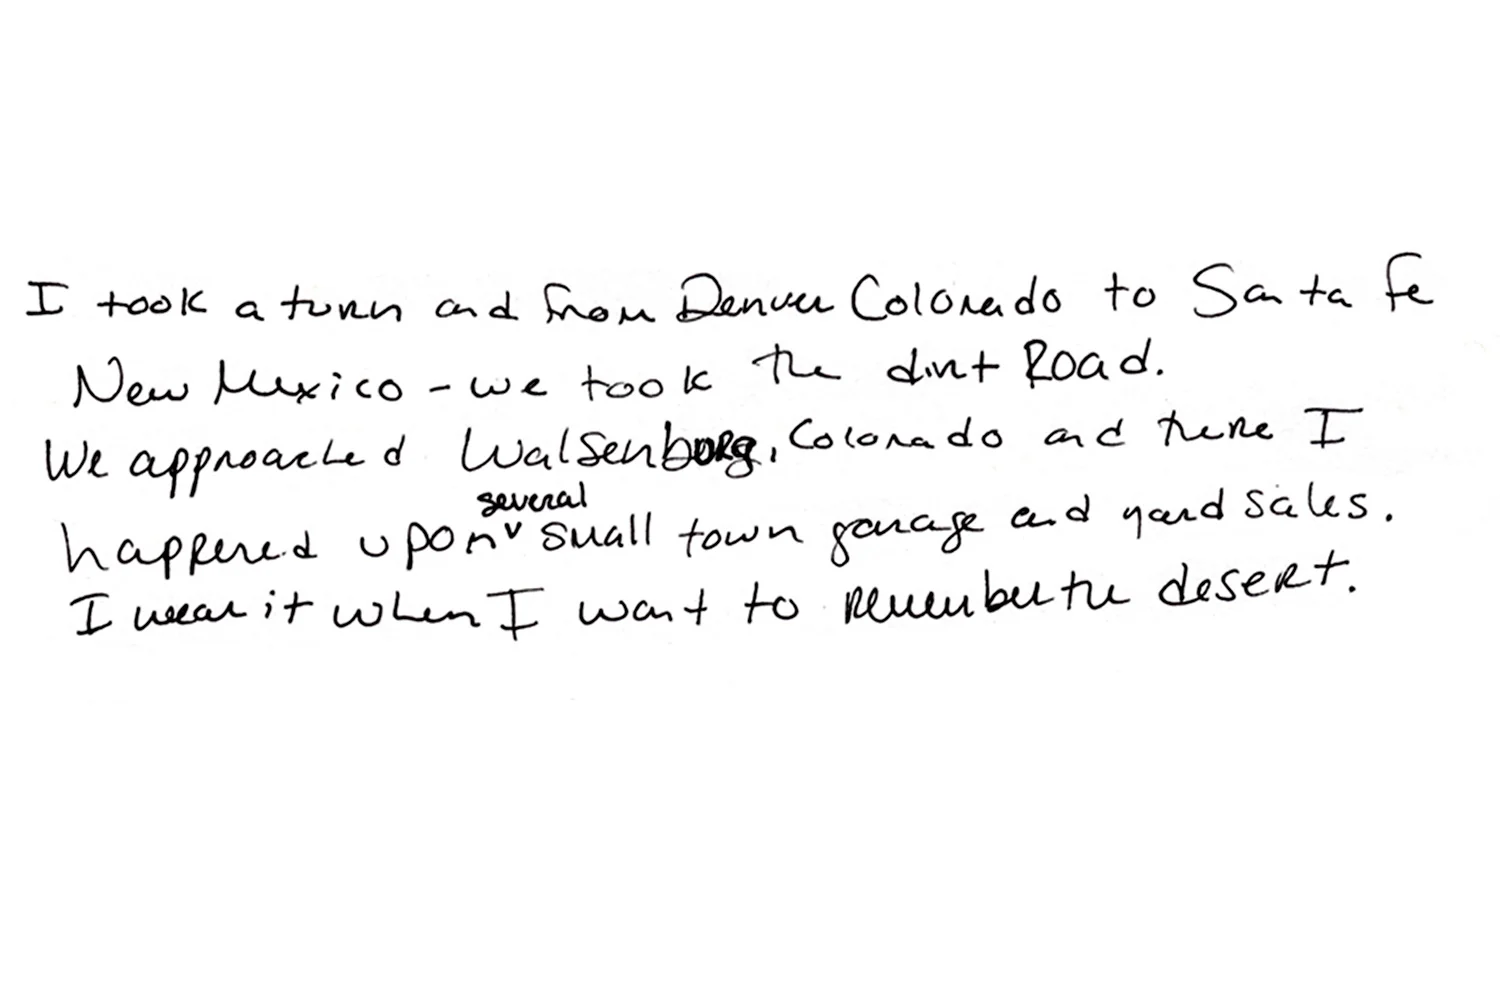 I took a turn and from Denver Colorado to Santa Fe
New Mexico - we took the dirt Road.
We approached Walsenborg, Colorado and there I
several
happened upon ˅ small town garage and yard sales.
I wear it when I want to remember the desert.